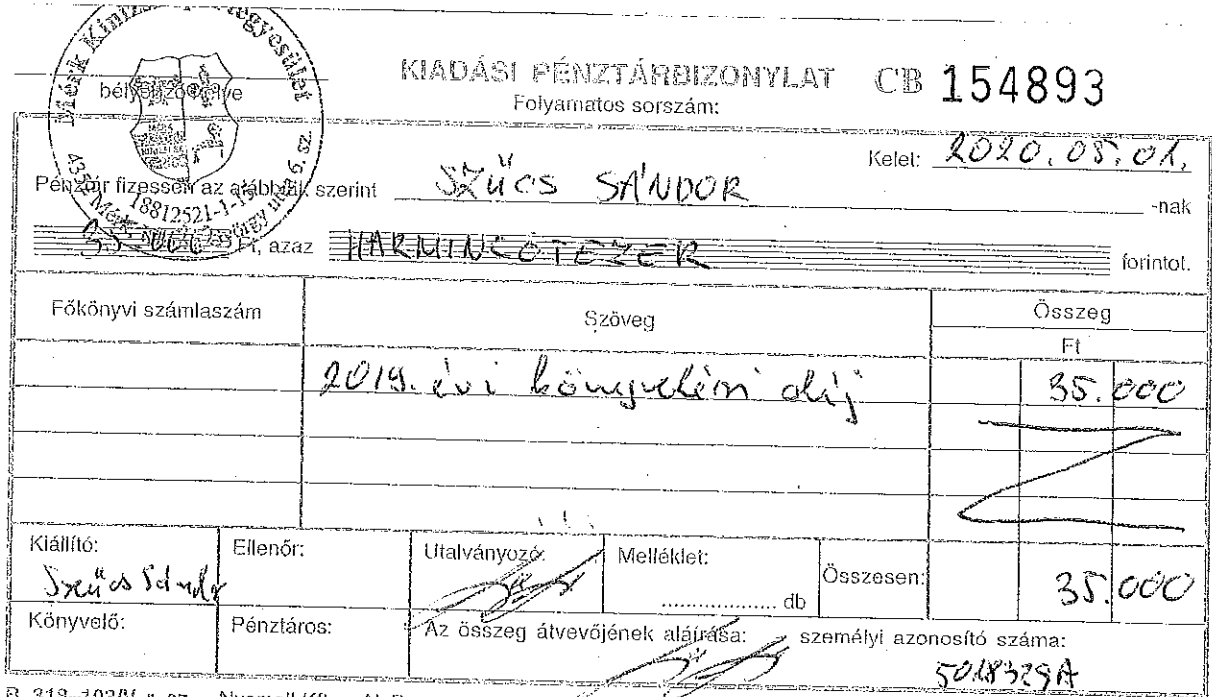 KIADÁSI PÉNZTÁRBIZONYLAT CB 154893
Folyamatos sorszám:
Kelet: 2020.05.01.
Pénztár fizessen az alábbiak szerint SZŰCS SÁNDOR -nak
35.000 Ft, azaz HARMINCÖTEZER forintot.
Főkönyvi számlaszám Szöveg Összeg
Ft
2019. évi könyvelési díj 35.000
Kiállító: Ellenőr: Utalványozó: Melléklet: Összesen: 35.000
Szűcs Sándor db
Könyvelő: Pénztáros: Az összeg átvevőjének aláírása: személyi azonosító száma:
18812521-1-15